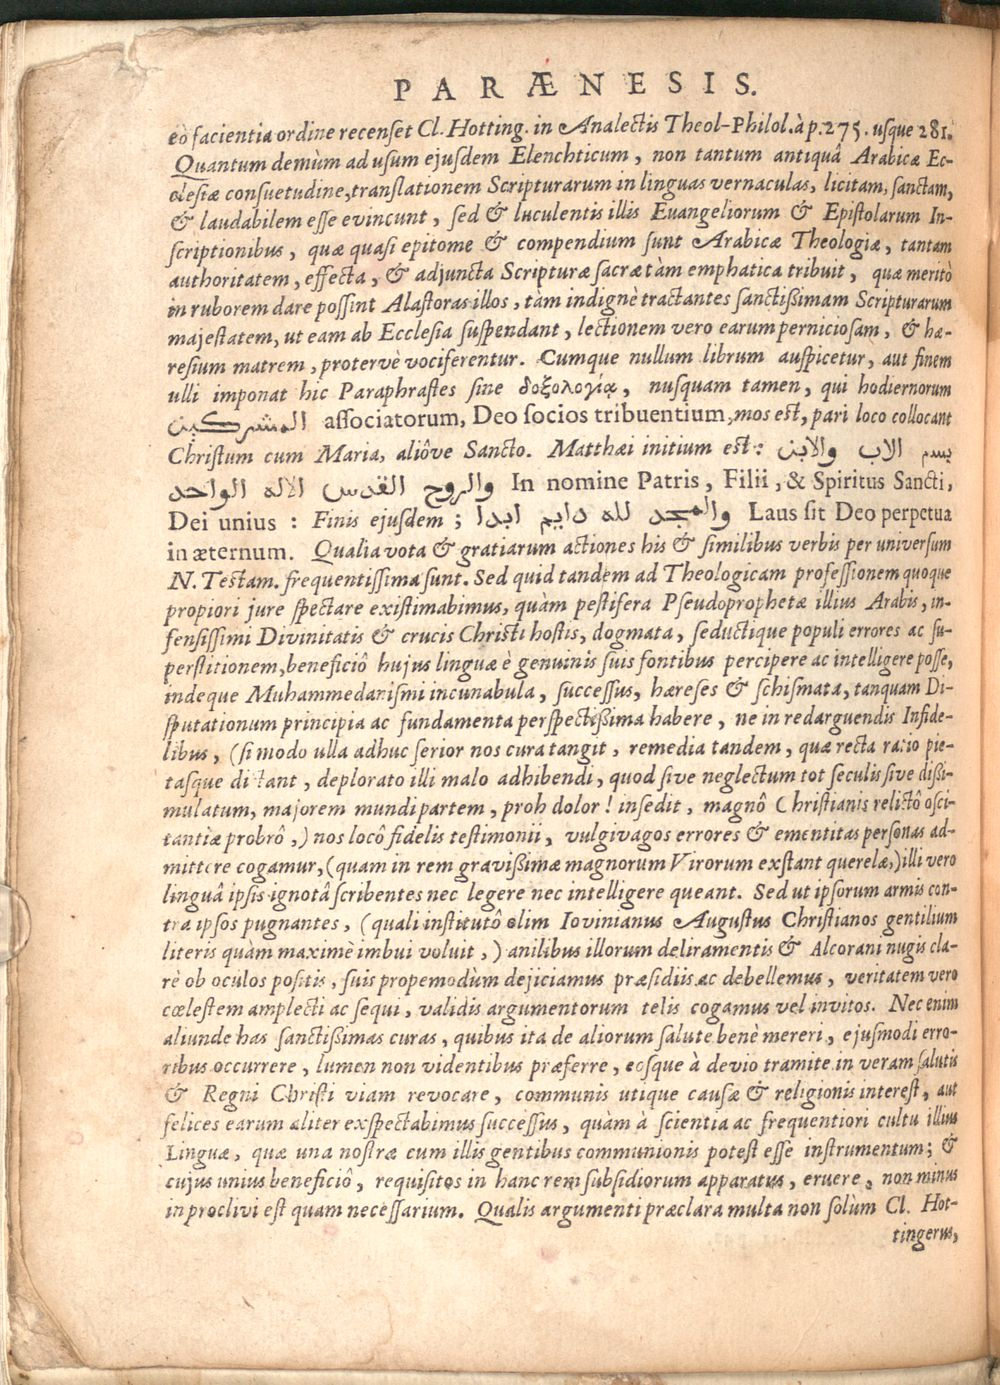 PARÆNESIS.
eò facientia ordine recenset Cl. Hotting. in Analectis Theol-Philol. à p. 275. usque 281.
Quantum demùm ad usum ejusdem Elenchticum, non tantum antiquâ Arabicæ Ec-
clesiæ consuetudine, translationem Scripturarum in linguas vernaculas, licitam, sanctam,
& laudabilem esse evincunt, sed & luculentis illis Euangeliorum & Epistolarum In-
scriptionibus, quæ quasi epitome & compendium sunt Arabicæ Theologiæ, tantam
authoritatem, effecta, & adjuncta Scripturæ sacræ tàm emphatica tribuit, quæ meritò
in ruborem dare possint Alastoras illos, tàm indignè tractantes sanctissimam Scripturarum
majestatem, ut eam ab Ecclesia suspendant, lectionem vero earum perniciosam, & hæ-
resium matrem, protervè vociferentur. Cumque nullum librum auspicetur, aut finem
ulli imponat hic Paraphrastes sine δοξολογίᾳ, nusquam tamen, qui hodiernorum
المشركين associatorum, Deo socios tribuentium, mos est, pari loco collocant
Christum cum Maria, aliôve Sancto. Matthæi initium est: بسم الاب والابن
والروح القدس الاله الواحد In nomine Patris, Filii, & Spiritus Sancti,
Dei unius: Finis ejusdem; والمجد لله دايم ابدا Laus sit Deo perpetua
in æternum. Qualia vota & gratiarum actiones his & similibus verbis per universum
N. Testam. frequentissima sunt. Sed quid tandem ad Theologicam professionem quoque
propiori jure spectare existimabimus, quàm pestifera Pseudoprophetæ illius Arabis, in-
fensissimi Divinitatis & crucis Christi hostis, dogmata, seductique populi errores ac su-
perstitionem, beneficiô hujus linguæ è genuinis suis fontibus percipere ac intelligere posse,
indeque Muhammedanismi incunabula, successus, hæreses & schismata, tanquam Di-
sputationum principia ac fundamenta perspectissima habere, ne in redarguendis Infide-
libus, (si modo ulla adhuc serior nos cura tangit, remedia tandem, quæ recta ratio pie-
tasque dictant, deplorato illi malo adhibendi, quod sive neglectum tot seculis sive dissi-
mulatum, majorem mundi partem, proh dolor! insedit, magnô Christianis relictô osci-
tantiæ probrô,) nos locô fidelis testimonii, vulgivagos errores & ementitas personas ad-
mittere cogamur, (quam in rem gravissimæ magnorum Virorum exstant querelæ,) illi vero
linguâ ipsis ignotâ scribentes nec legere nec intelligere queant. Sed ut ipsorum armis con-
tra ipsos pugnantes, (quali institutô olim Iovinianus Augustus Christianos gentilium
literis quàm maximè imbui voluit,) anilibus illorum deliramentis & Alcorani nugis cla-
rè ob oculos positis, suis propemodùm dejiciamus præsidiis ac debellemus, veritatem vero
cœlestem amplecti ac sequi, validis argumentorum telis cogamus vel invitos. Nec enim
aliunde has sanctissimas curas, quibus ita de aliorum salute benè mereri, ejusmodi erro-
ribus occurrere, lumen non videntibus præferre, eosque à devio tramite in veram salutis
& Regni Christi viam revocare, communis utique causæ & religionis interest, aut
felices earum aliter exspectabimus successus, quàm à scientia ac frequentiori cultu illius
Linguæ, quæ una nostræ cum illis gentibus communionis potest esse instrumentum; &
cujus unius beneficiô, requisitos in hanc rem subsidiorum apparatus, eruere, non minus
in proclivi est quam necessarium. Qualis argumenti præclara multa non solùm Cl. Hot-
tingerus,